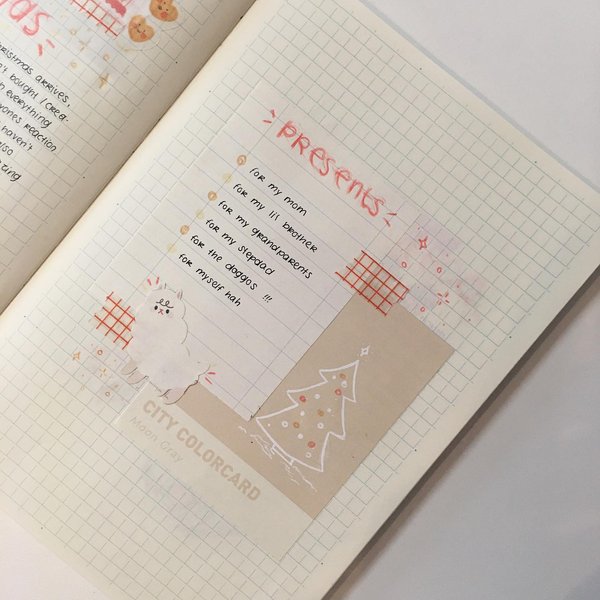 christmas arrives,
bought / crea-
everything
reaction
haven't
also
presents
for my mom
for my lil brother
for my grandparents
for my stepdad
for the doggos !!!
for myself hah
CITY COLORCARD
Moon Gray